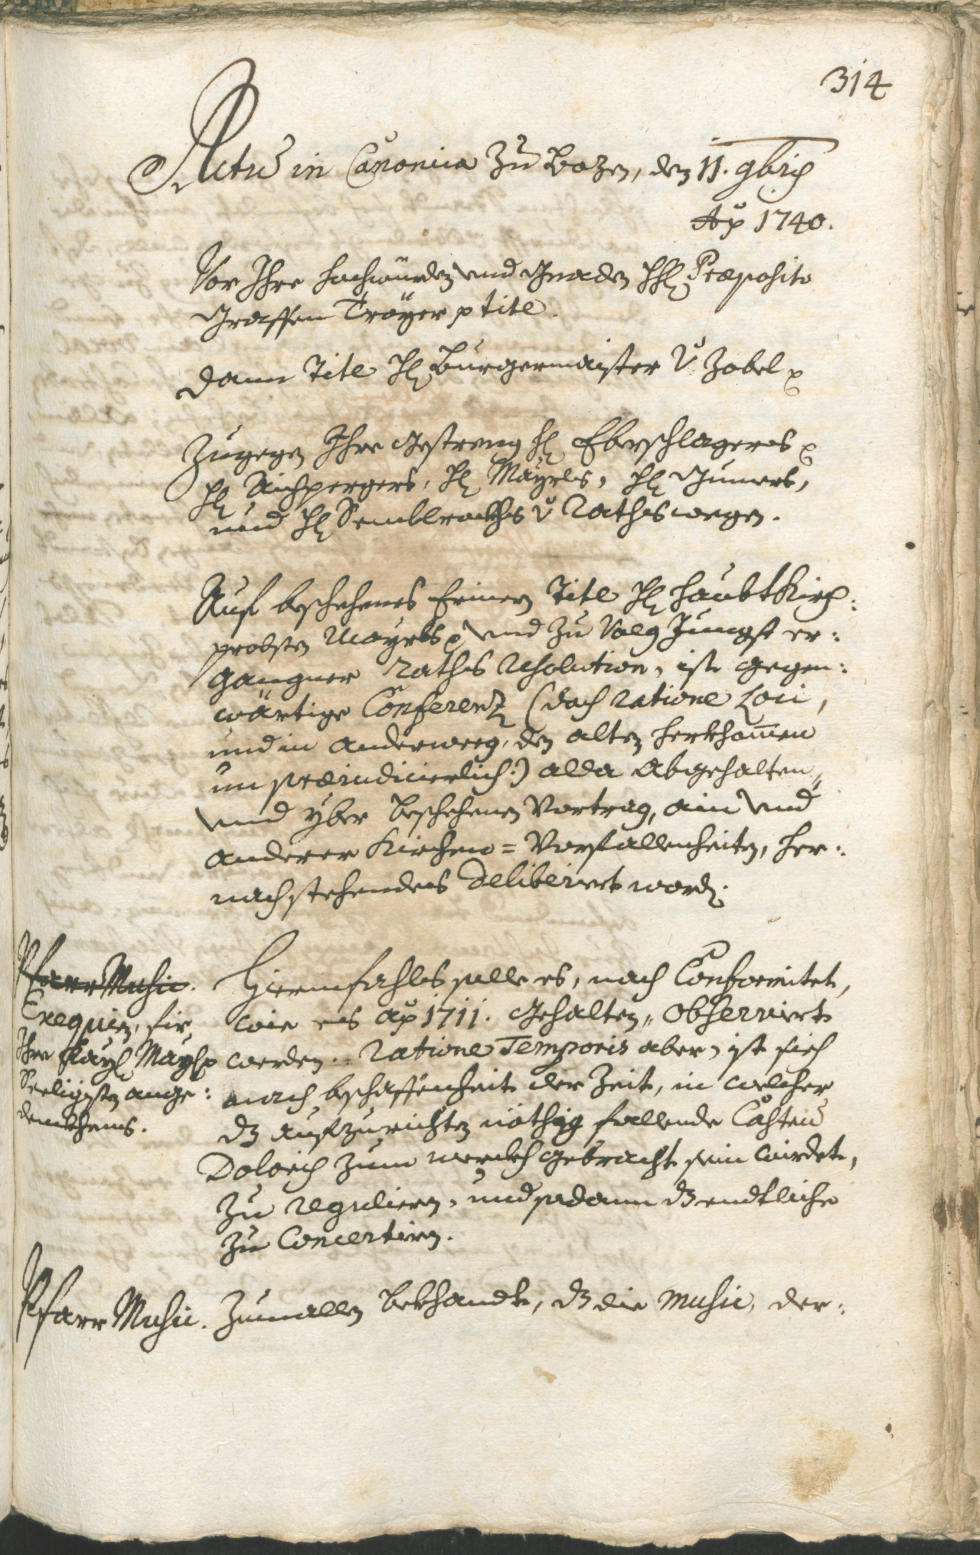 314
Actu in Canonica zu Bozen, den 11. 9bris
Aõ 1740.
Vor Ihro Hochwürden und Gnaden Hl Præposito
Graffen Troyer p titl.
dann Titl Hl Burgermaister V. Zobel p
Zugegen Ihro Gestreng Hl Eberschlagers p
Hl Aichpergers, Hl Mayrls, Hl Gumers,
und Hl Semblrockhs V Raths wegen.
Auf beschehenes Erinern Titl Hl haubtkirch:
probsten Mayrls p und zu Volg Jungst er:
gangner Raths Resolution, ist gegen:
wärtige Conferenz (doch ratione Loci,
und in anderweeg, den alten herkhomen
unpræiudicierlich:) alda abgehalten,
und yber beschehenen Vortrag, ain und
anderer Kirchen = Vorfallenheiten, her:
nachstehendes Deliberiert worden.
Pfarr Music.
Exequien, fir
Ihro Kayl Mayt p
Seeligsten ange:
denckhens.
Hierinfahls solle es, nach Conformitet,
wie es aõ 1711. gehalten, observiert
werden. Ratione Temporis aber, ist sich
nach beschaffenheit der Zeit, in welcher
dz aufzurichten nöthig fallende Casten
Doloris zum werckh gebracht sein wirdet,
zu regulieren, und sodann dz endtliche
zu Concertirn.
Pfarr Music.
Zumallen bekhandt, dz die Music, der: